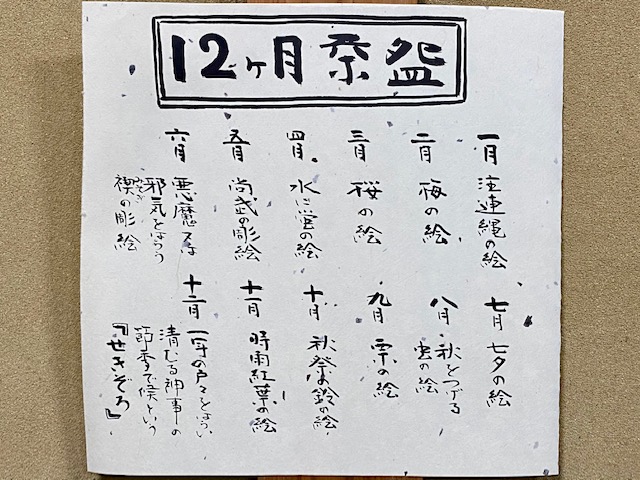 12ヶ月茶盌
一月 注連縄の絵
二月 梅の絵
三月 桜の絵
四月 水に蛍の絵
五月 尚武の彫絵
六月 悪魔又は
邪気をはらう
みそぎ
禊の彫絵
七月 七夕の絵
八月 秋をつげる
虫の絵
九月 栗の絵
十月 秋祭は鈴の絵
十一月 時雨紅葉の絵
十二月 一年の戸々をはらい
清むる神事の
節季で候という
『せきぞろ』